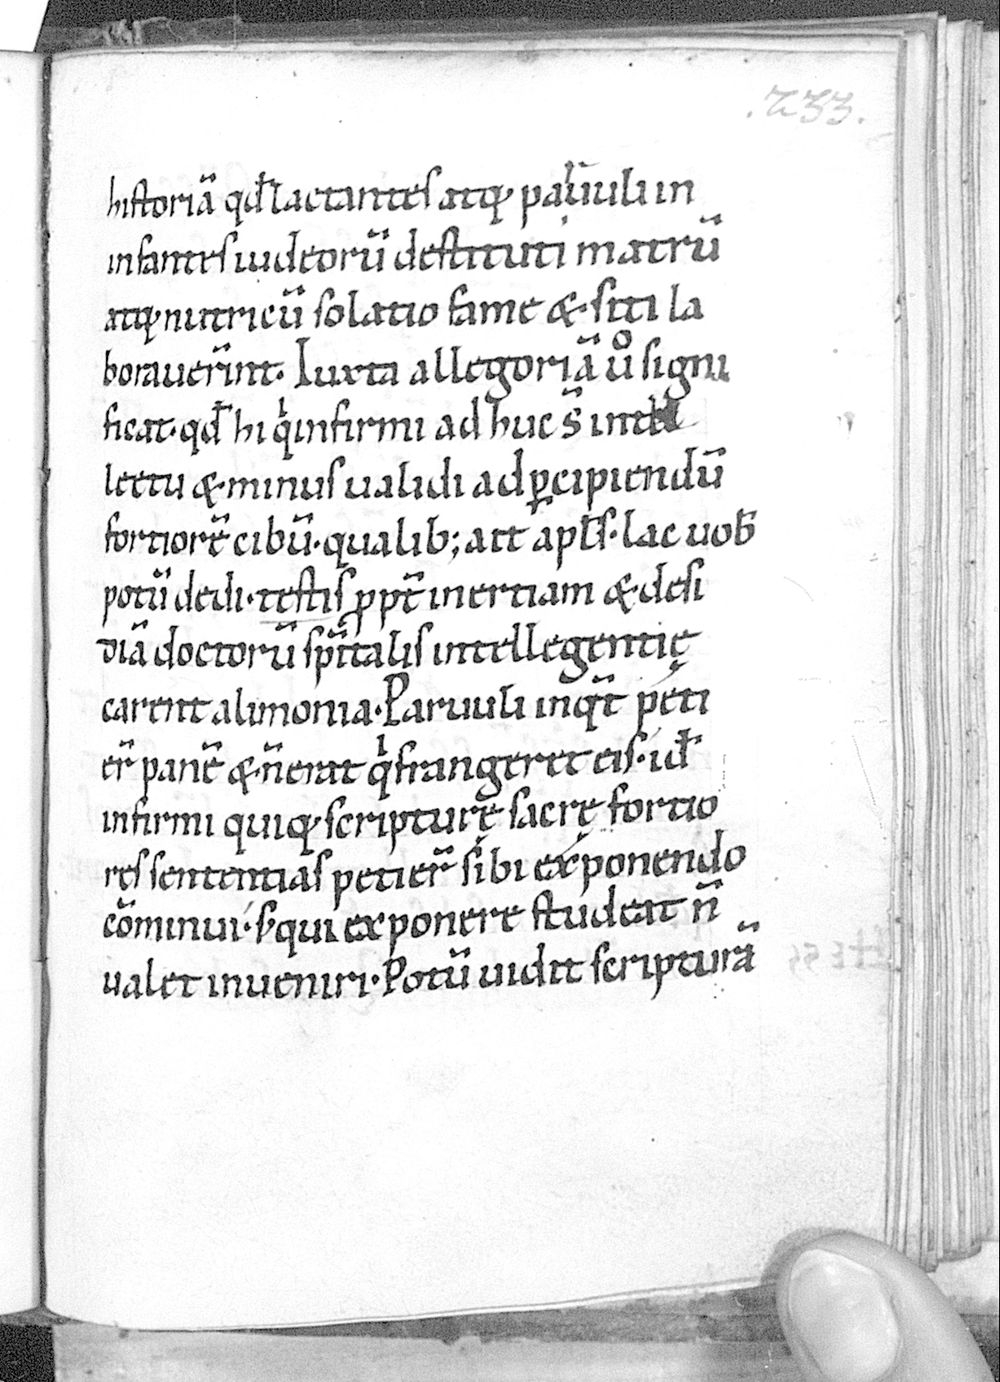 .233.
historiã qđ lactantes atq; paruuli in
infantes iudeorũ destituti matrũ
atq; nutricũ solatio fame &· siti la
borauer̃int· Iuxta allegoriã ů signi
ficat· qđ hi qͥ infirmi ad huc s̃ intel
lectu &· minus ualidi ad ꝑcipiendũ
fortiorẽ cibũ· qualib; ait apl̃s· lac uob̃
potũ dedi· testis ꝓpt̃ inertiam &· desi
diã doctorũ sp̃italis intellegentię
carent alimonia· Paruuli inqͥt peti
er̃ panẽ &· ñ erat qͥ frangeret eis· id̃
infirmi quiq; scripturę sacrę fortio
res sententias petier̃ sibi exponendo
cõminui· s; qui exponere studeat ñ
ualet inueniri· Potũ uidit scripturã